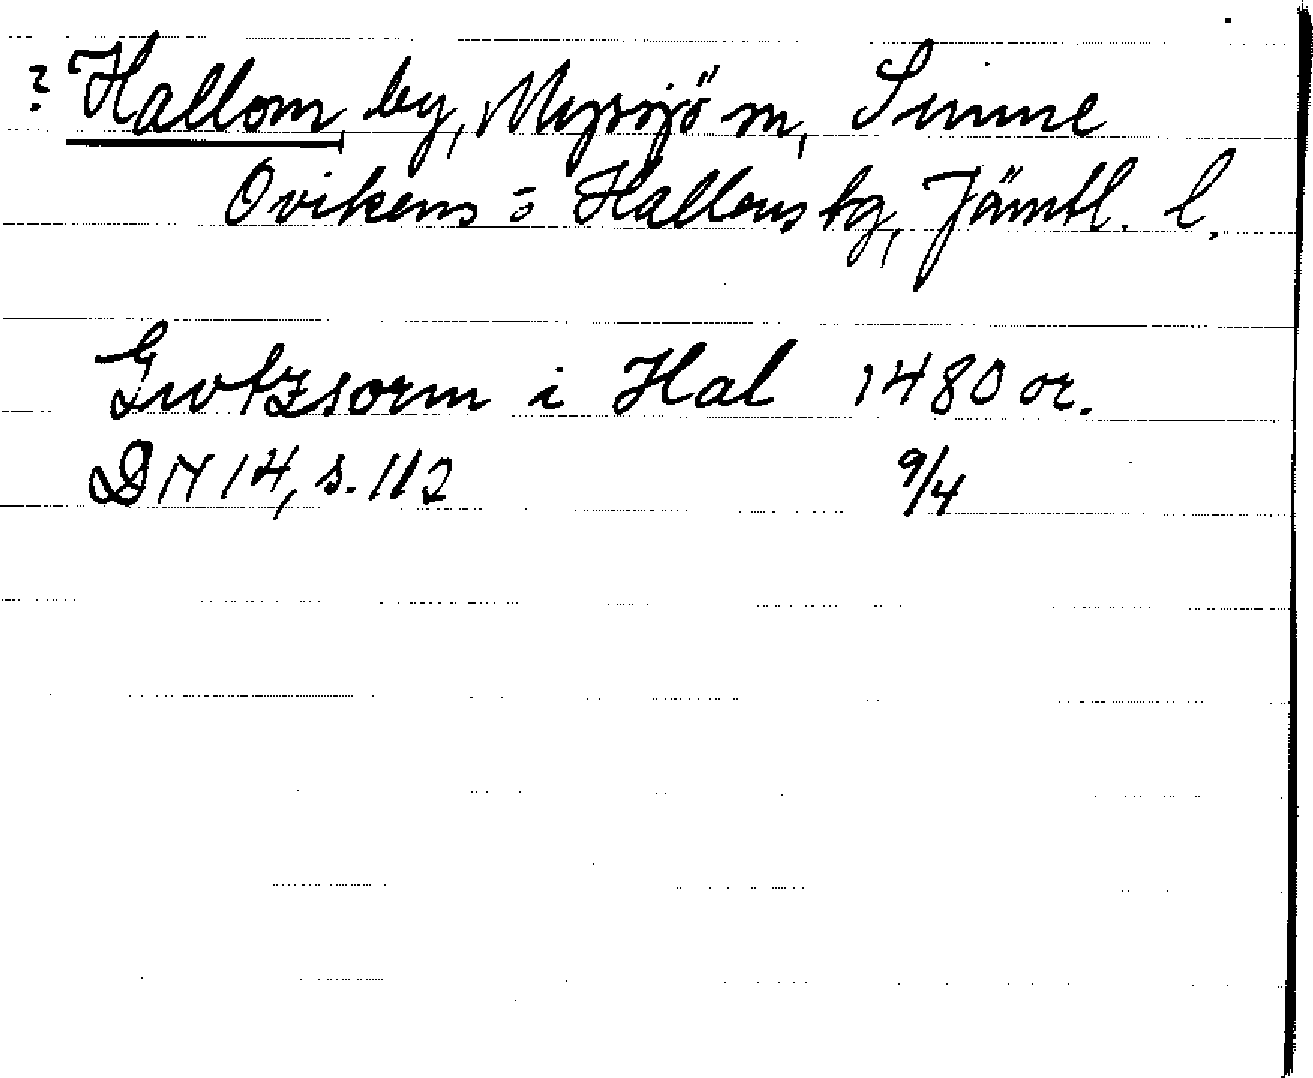 ? Hallom by, Myrsjö m, Sunne
Ovikens o Hallens tg, Jämtl. l.
Gwtzsorm i Hal 1480 or.
DN 14, s. 112 9/4